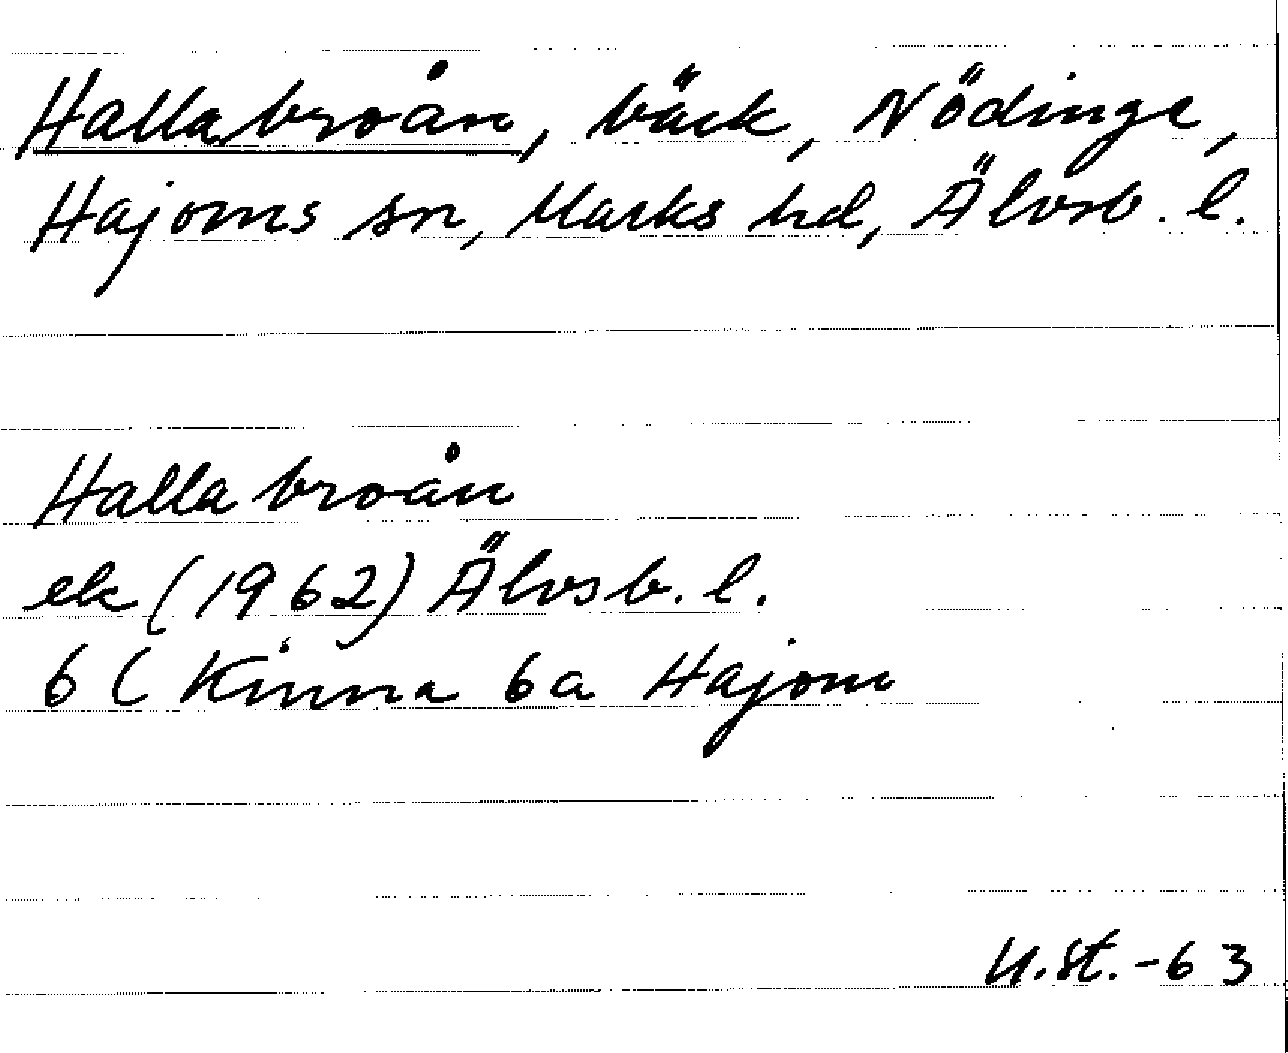 Hallabroån, bäck, Nödinge,
Hajoms sn, Marks hd, Älvsb. l.
Hallabroån
ek (1962) Älvsb. l.
6 C Kinna 6a Hajom
U.St.-63